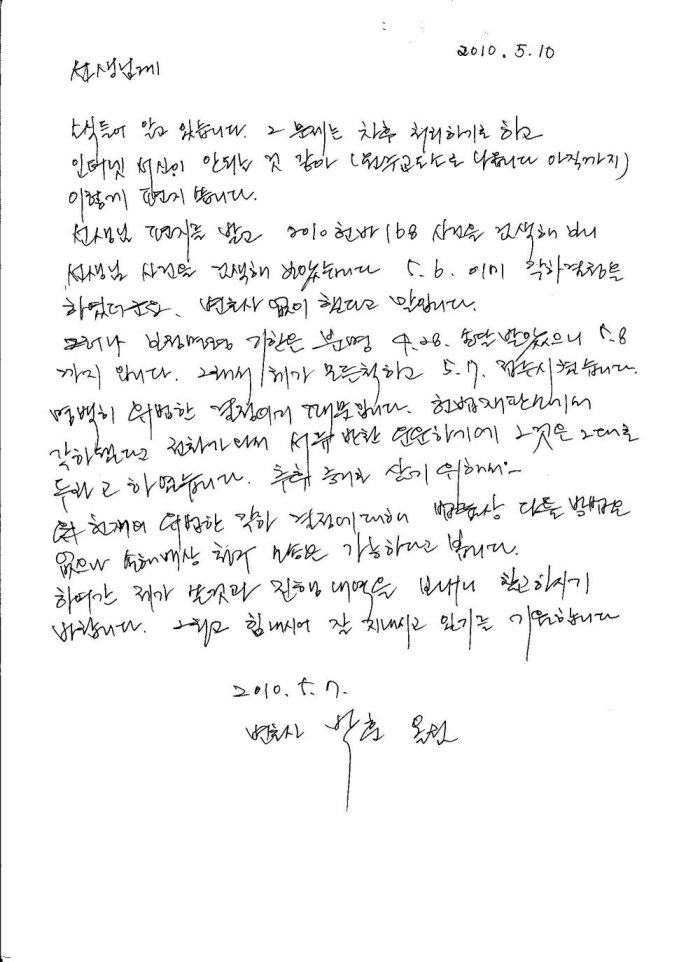 2010. 5. 10
선생님께
소식들어 알고 있습니다. 그 문제는 차후 처리하기로 하고
인터넷 서신이 안되는 것 같아 (원주교도소로 나옵니다 아직까지)
이렇게 편지 씁니다.
선생님 편지를 받고 2010헌바168 사건을 검색해 보니
선생님 사건을 검색해 보았습니다 5.6. 이미 각하결정을
하였더군요. 변호사 없이 했다고 말입니다.
그러나 보정명령 기한은 분명 4.28. 송달 받았으니 5.8
까지 입니다. 그래서 제가 모른척하고 5.7. 접수시켰습니다.
명백히 위법한 결정이기 때문입니다. 헌법재판소에서
각하됐다고 전화가 와서 서류 반환 운운하기에 그것은 그대로
두라고 하였습니다. 추후 증거로 삼기 위해서-
헌재의 위법한 각하 결정에 대해 법률상 다툴 방법은
없으나 손해배상 청구 소송은 가능하다고 봅니다.
하여간 제가 낸 것과 진행 내역을 보내니 참고하시기
바랍니다. 그리고 힘내시어 잘 지내시고 있기를 기원합니다
2010. 5. 7.
변호사 박훈 올림